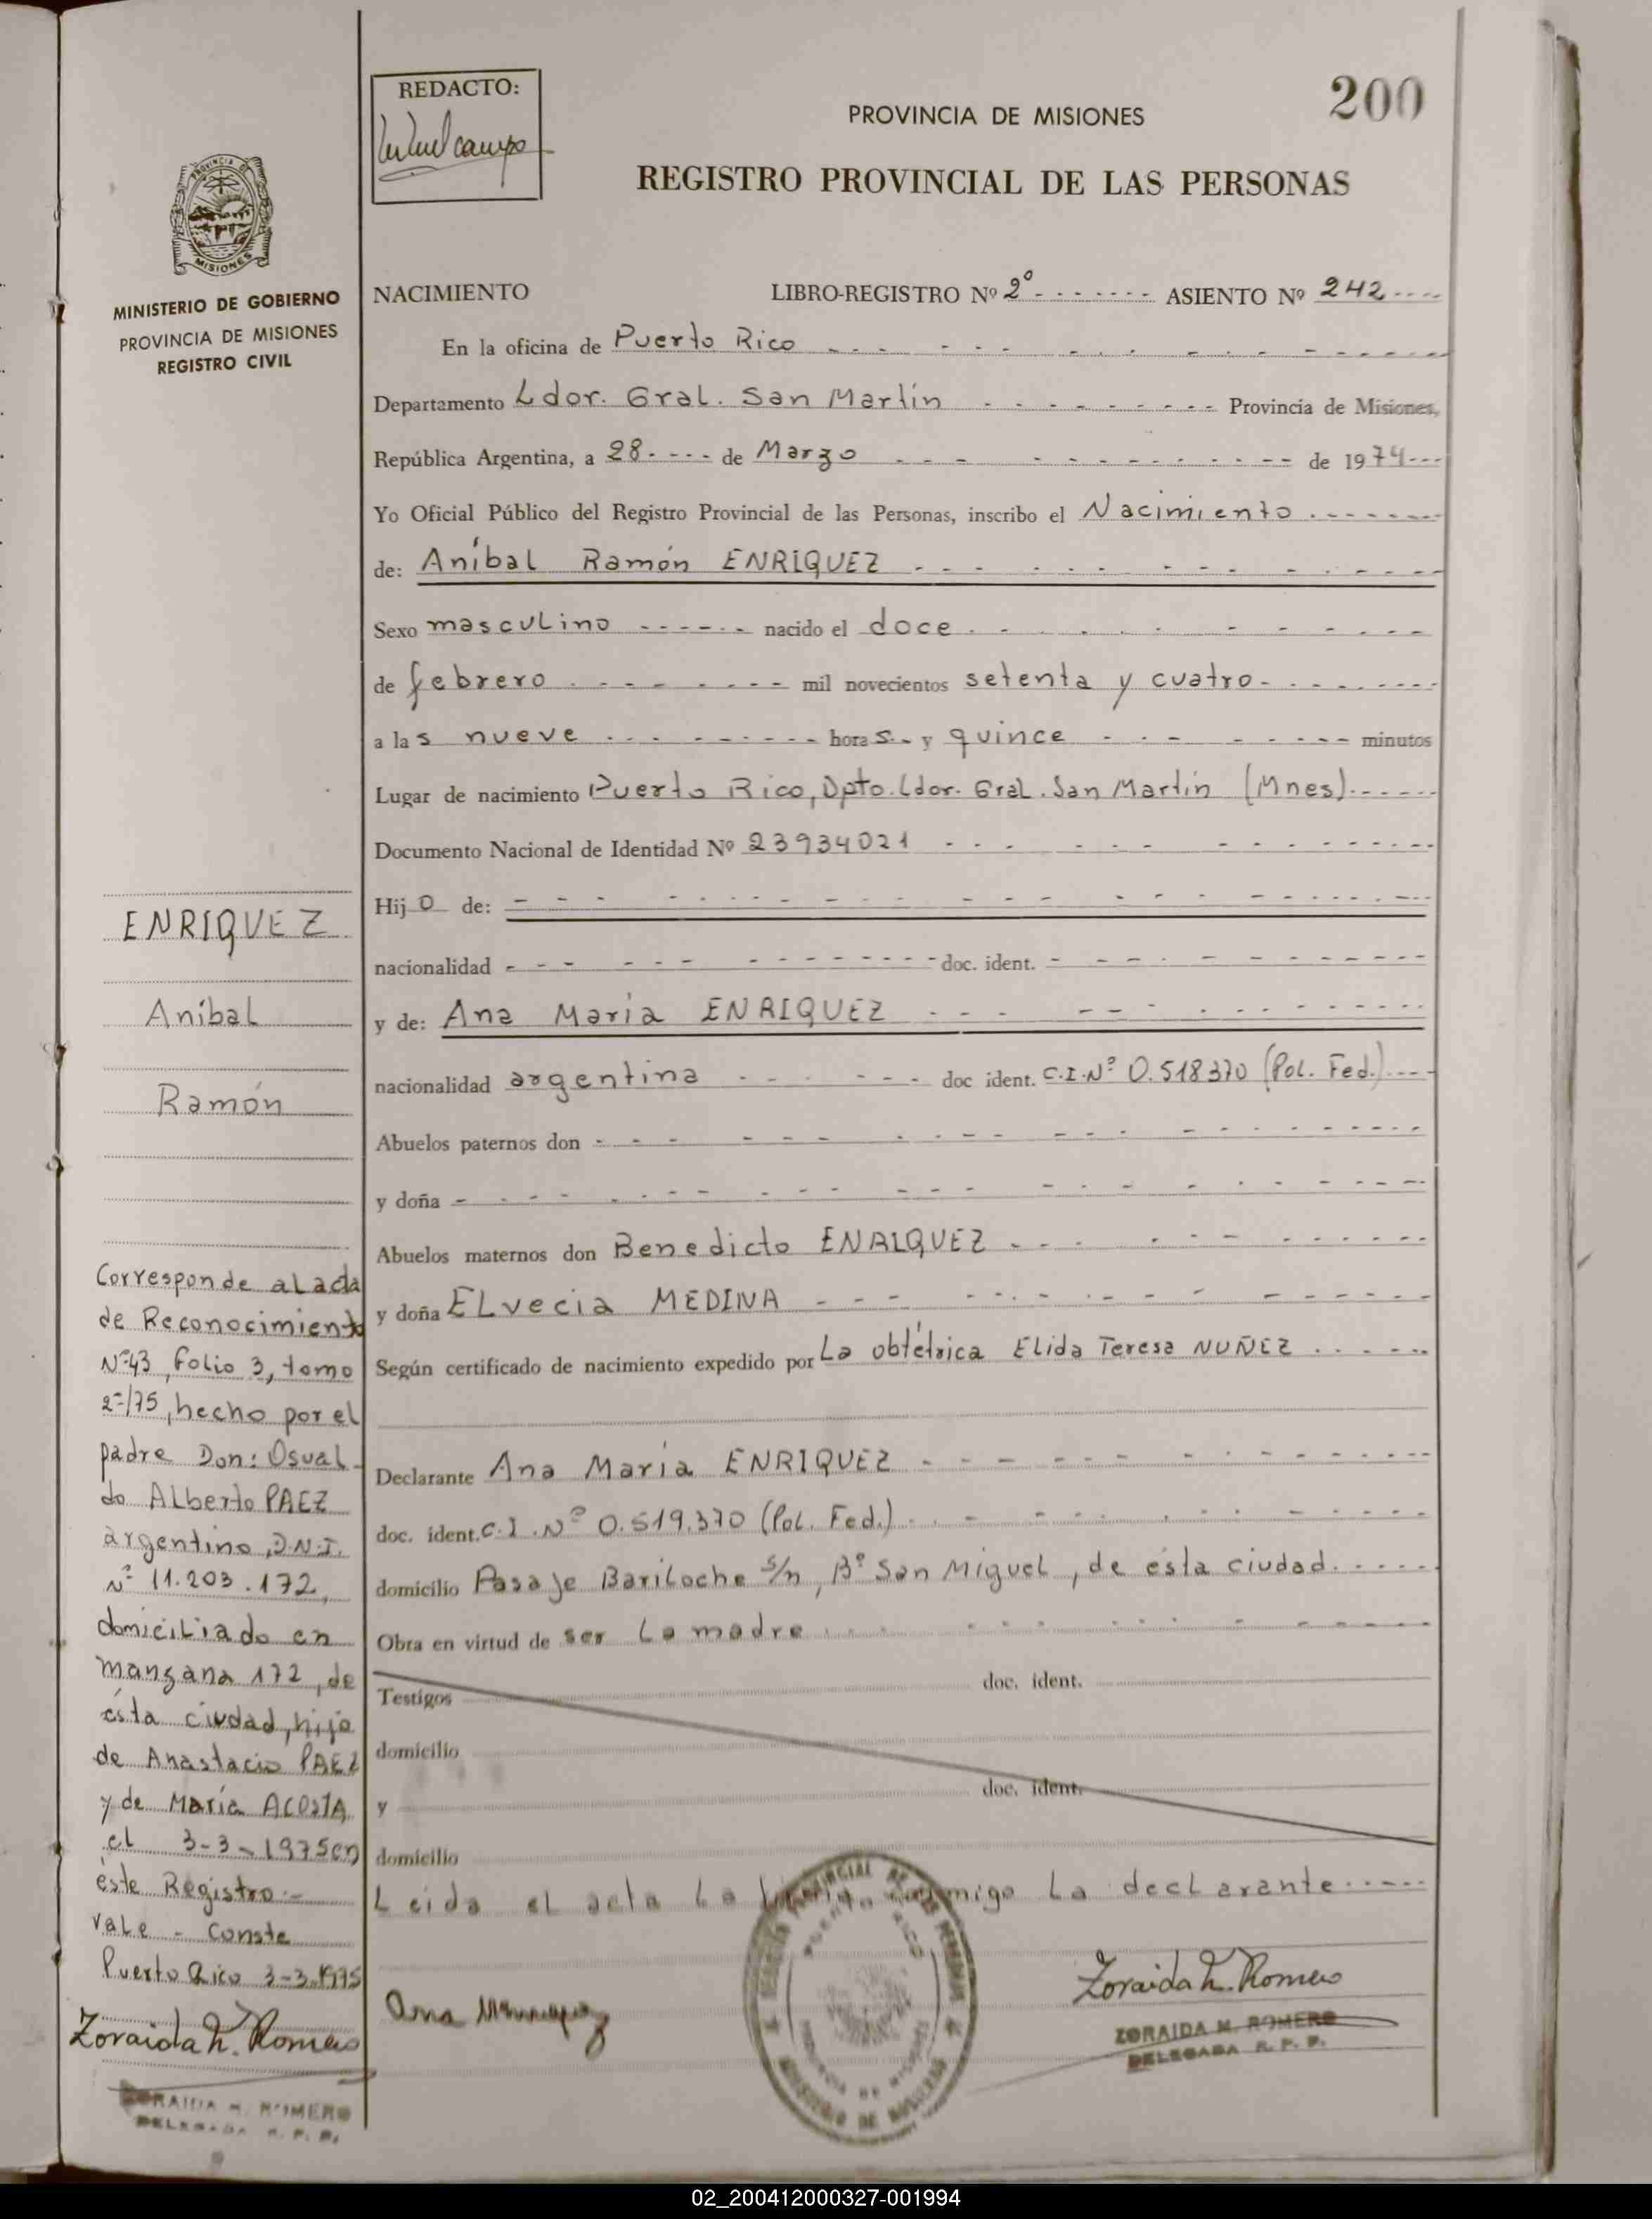 200
REDACTO:
PROVINCIA DE MISIONES
REGISTRO PROVINCIAL DE LAS PERSONAS
MISIONES
MINISTERIO DE GOBIERNO
PROVINCIA DE MISIONES
REGISTRO CIVIL
NACIMIENTO LIBRO-REGISTRO Nº 2º ASIENTO Nº 242
En la oficina de Puerto Rico
Departamento Ldor. Gral. San Martín Provincia de Misiones,
República Argentina, a 28 de Marzo de 1974
Yo Oficial Público del Registro Provincial de las Personas, inscribo el Nacimiento
de: Aníbal Ramón ENRIQUEZ
Sexo masculino nacido el doce
de febrero mil novecientos setenta y cuatro
a las nueve horas y quince minutos
Lugar de nacimiento Puerto Rico, Dpto. Ldor. Gral. San Martín (Mnes)
Documento Nacional de Identidad Nº 23934021
Hijo de:
nacionalidad doc. ident.
y de: Ana María ENRIQUEZ
nacionalidad argentina doc ident. C.I.Nº 0.518370 (Pol. Fed.)
Abuelos paternos don
y doña
Abuelos maternos don Benedicto ENRIQUEZ
y doña ELvecia MEDINA
Según certificado de nacimiento expedido por La obtétrica Elida Teresa NUÑEZ
Declarante Ana María ENRIQUEZ
doc. ident. C.I.Nº 0.519.370 (Pol. Fed.)
domicilio Pasaje Bariloche s/n, Bº San Miguel, de ésta ciudad.
Obra en virtud de ser la madre
doc. ident.
Testigos
domicilio
doc. ident.
y
domicilio
Leida el acta la firma conmigo la declarante
Zoraida M. Romero
ZORAIDA M. ROMERO
DELEGADA R. P. P.
ENRIQUEZ
Aníbal
Ramón
Corresponde al acta
de Reconocimiento
Nº 43, folio 3, tomo
2º/75, hecho por el
padre Don: Osval-
do Alberto PAEZ
argentino, D.N.I.
Nº 11.203.172,
domiciliado en
manzana 172, de
ésta ciudad, hijo
de Anastacio PAEZ
y de María ACOSTA
el 3-3-1975 en
éste Registro.-
Vale - Conste
Puerto Rico 3-3-1975
Zoraida M. Romero
ZORAIDA M. ROMERO
DELEGADA R. P. P.
02_200412000327-001994